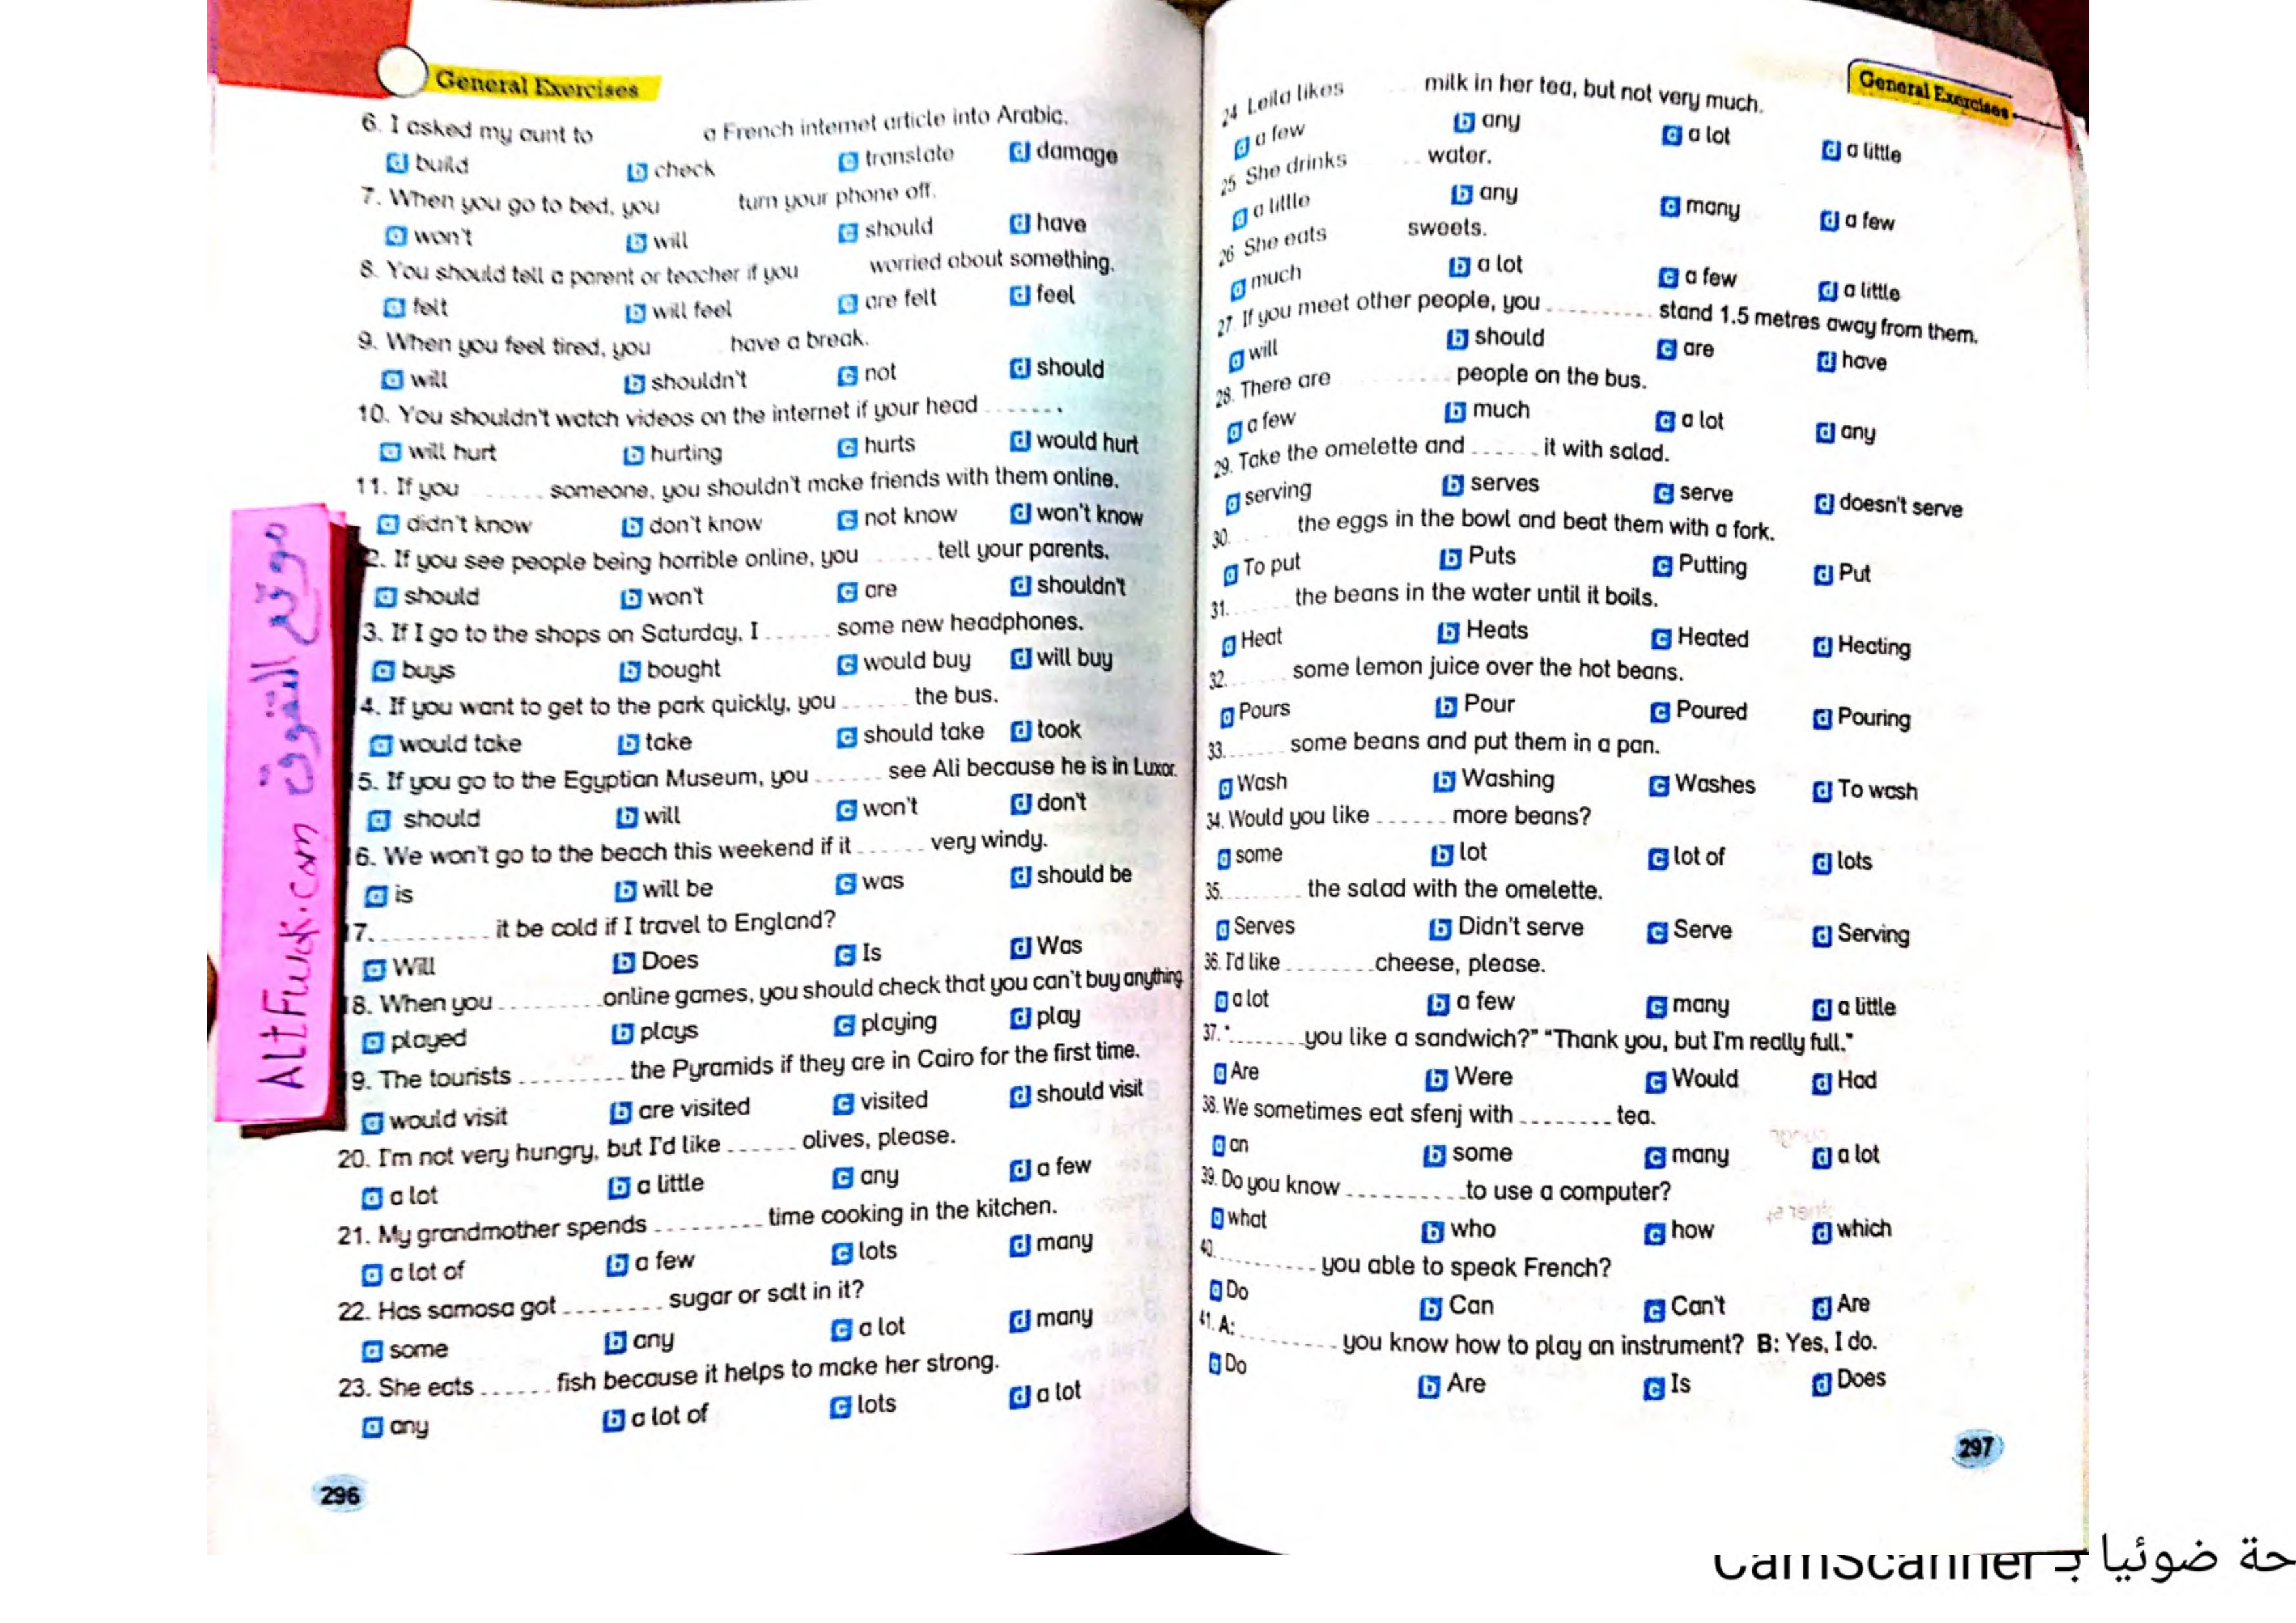 General Exercises
6. I asked my aunt to a French internet article into Arabic.
a build b check c translate d damage
7. When you go to bed, you turn your phone off.
a won't b will c should d have
8. You should tell a parent or teacher if you worried about something.
a felt b will feel c are felt d feel
9. When you feel tired, you have a break.
a will b shouldn't c not d should
10. You shouldn't watch videos on the internet if your head ........
a will hurt b hurting c hurts d would hurt
11. If you ...... someone, you shouldn't make friends with them online.
a didn't know b don't know c not know d won't know
2. If you see people being horrible online, you ...... tell your parents.
a should b won't c are d shouldn't
3. If I go to the shops on Saturday, I ...... some new headphones.
a buys b bought c would buy d will buy
4. If you want to get to the park quickly, you ...... the bus.
a would take b take c should take d took
5. If you go to the Egyptian Museum, you ...... see Ali because he is in Luxor.
a should b will c won't d don't
6. We won't go to the beach this weekend if it ...... very windy.
a is b will be c was d should be
17. .......... it be cold if I travel to England?
a Will b Does c Is d Was
18. When you ......... online games, you should check that you can't buy anything
a played b plays c playing d play
19. The tourists ......... the Pyramids if they are in Cairo for the first time.
a would visit b are visited c visited d should visit
20. I'm not very hungry, but I'd like ...... olives, please.
a a lot b a little c any d a few
21. My grandmother spends ......... time cooking in the kitchen.
a a lot of b a few c lots d many
22. Has samosa got ......... sugar or salt in it?
a some b any c a lot d many
23. She eats ...... fish because it helps to make her strong.
a any b a lot of c lots d a lot
296
موقع التفوق
AltFwok.com
General Exercises
24 Leila likes milk in her tea, but not very much.
a a few b any c a lot d a little
25 She drinks water.
a a little b any c many d a few
26 She eats sweets.
a much b a lot c a few d a little
27. If you meet other people, you .......... stand 1.5 metres away from them.
a will b should c are d have
28. There are ........ people on the bus.
a a few b much c a lot d any
29. Take the omelette and ...... it with salad.
a serving b serves c serve d doesn't serve
30. ...... the eggs in the bowl and beat them with a fork.
a To put b Puts c Putting d Put
31. ...... the beans in the water until it boils.
a Heat b Heats c Heated d Heating
32. ...... some lemon juice over the hot beans.
a Pours b Pour c Poured d Pouring
33. ...... some beans and put them in a pan.
a Wash b Washing c Washes d To wash
34. Would you like ...... more beans?
a some b lot c lot of d lots
35. ........ the salad with the omelette.
a Serves b Didn't serve c Serve d Serving
36. I'd like ........ cheese, please.
a a lot b a few c many d a little
37. "....... you like a sandwich?" "Thank you, but I'm really full."
a Are b Were c Would d Had
38. We sometimes eat sfenj with ........ tea.
a an b some c many d a lot
39. Do you know .......... to use a computer?
a what b who c how d which
40. ......... you able to speak French?
a Do b Can c Can't d Are
41. A: ......... you know how to play an instrument? B: Yes, I do.
a Do b Are c Is d Does
297
حة ضوئيا بـ CamScanner